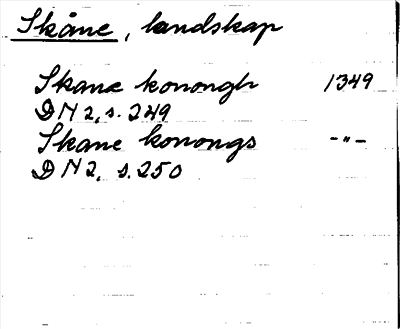 Skåne, landskap
Skanæ konongh 1349
DN 2, s. 249
Skane konongs -"-
DN 2, s. 250